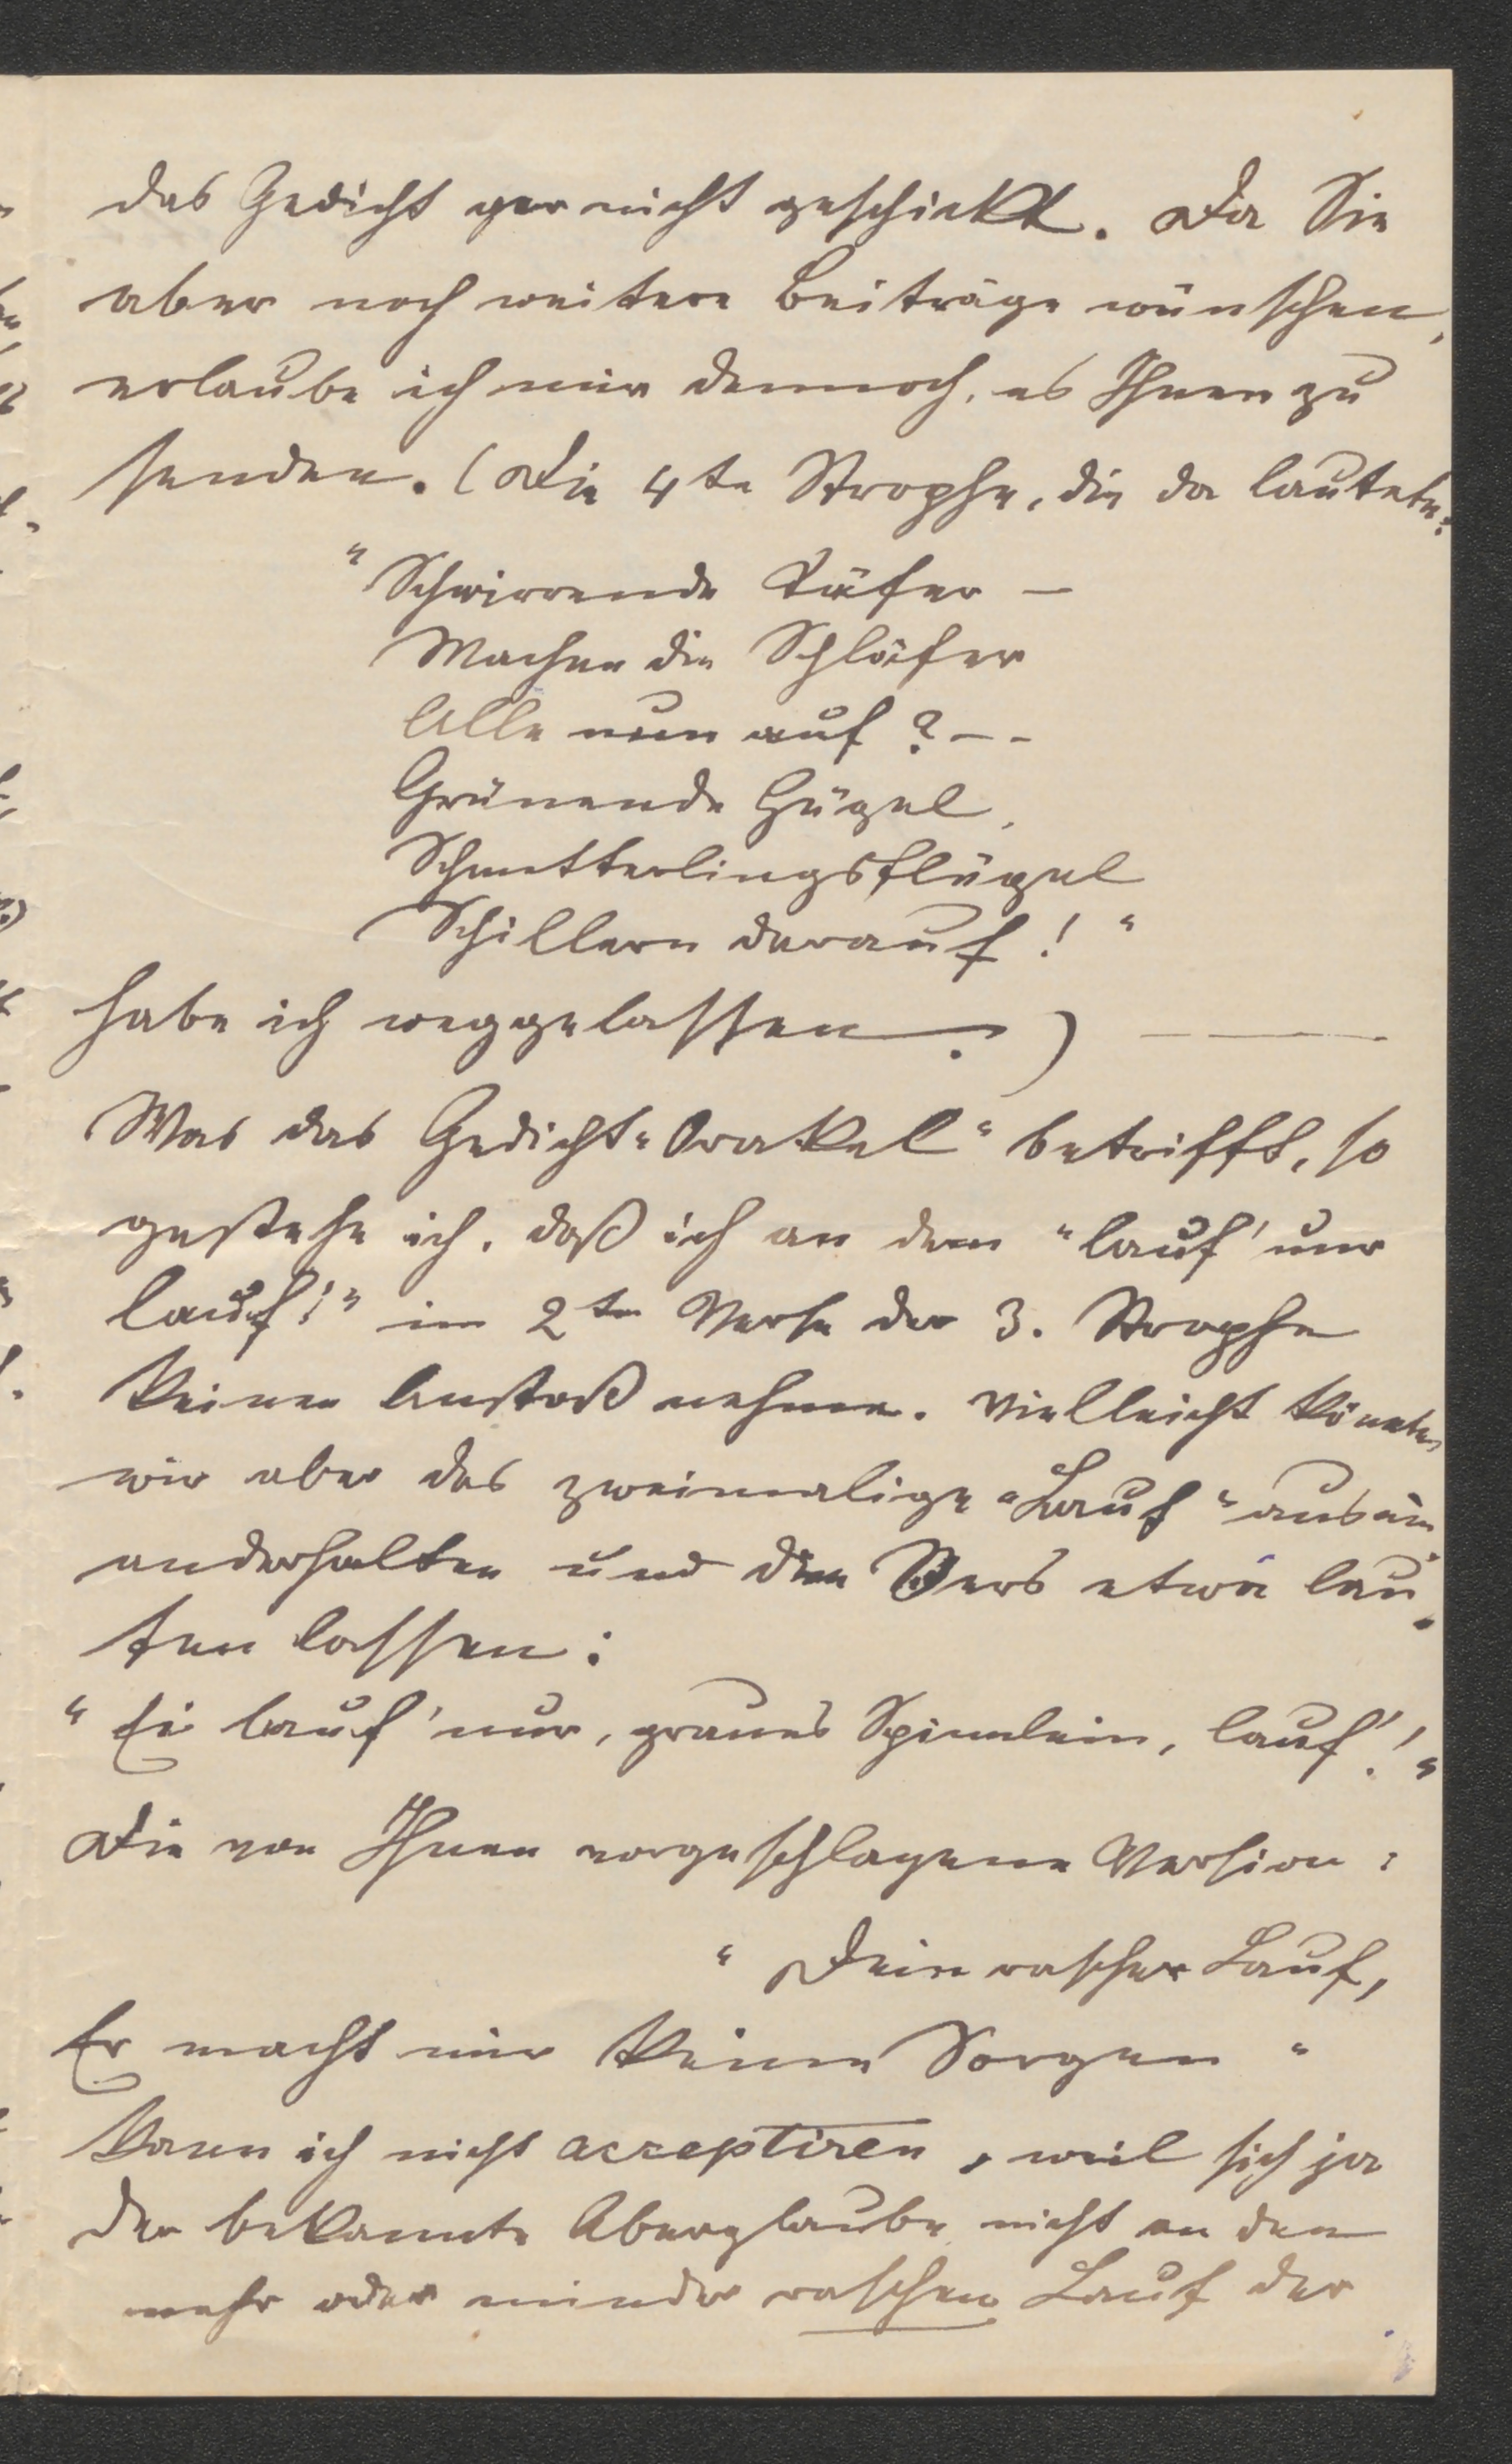 das Gedicht gar nicht geschickt. Da Sie
aber noch weitere Beiträge wünschen,
erlaube ich mir dennoch, es Ihnen zu
senden. (Die 4te Strophe, die da lautete:
"Schwirrende Käfer —
Machen die Schläfer
Alle nun auf? – –
Grünende Hügel,
Schmetterlingsflügel
Schillern darauf!"
habe ich weggelassen.) — —
Was das Gedicht "Orakel" betrifft, so
gestehe ich, daß ich an dem "lauf' nur
lauf!" im 2ten Verse der 3. Strophe
keinen Anstoß nehme. Vielleicht könnten
wir aber das zweimalige "Lauf" ausein-
anderhalten und den Vers etwa lau-
ten lassen:
"Ei lauf' nur, graues Spinnlein, lauf'!"
Die von Ihnen vorgeschlagene Version:
"Dein rascher Lauf,
Er macht mir keine Sorgen"
kann ich nicht acceptiren, weil sich ja
der bekannte Aberglaube nicht an den
mehr oder minder raschen Lauf der